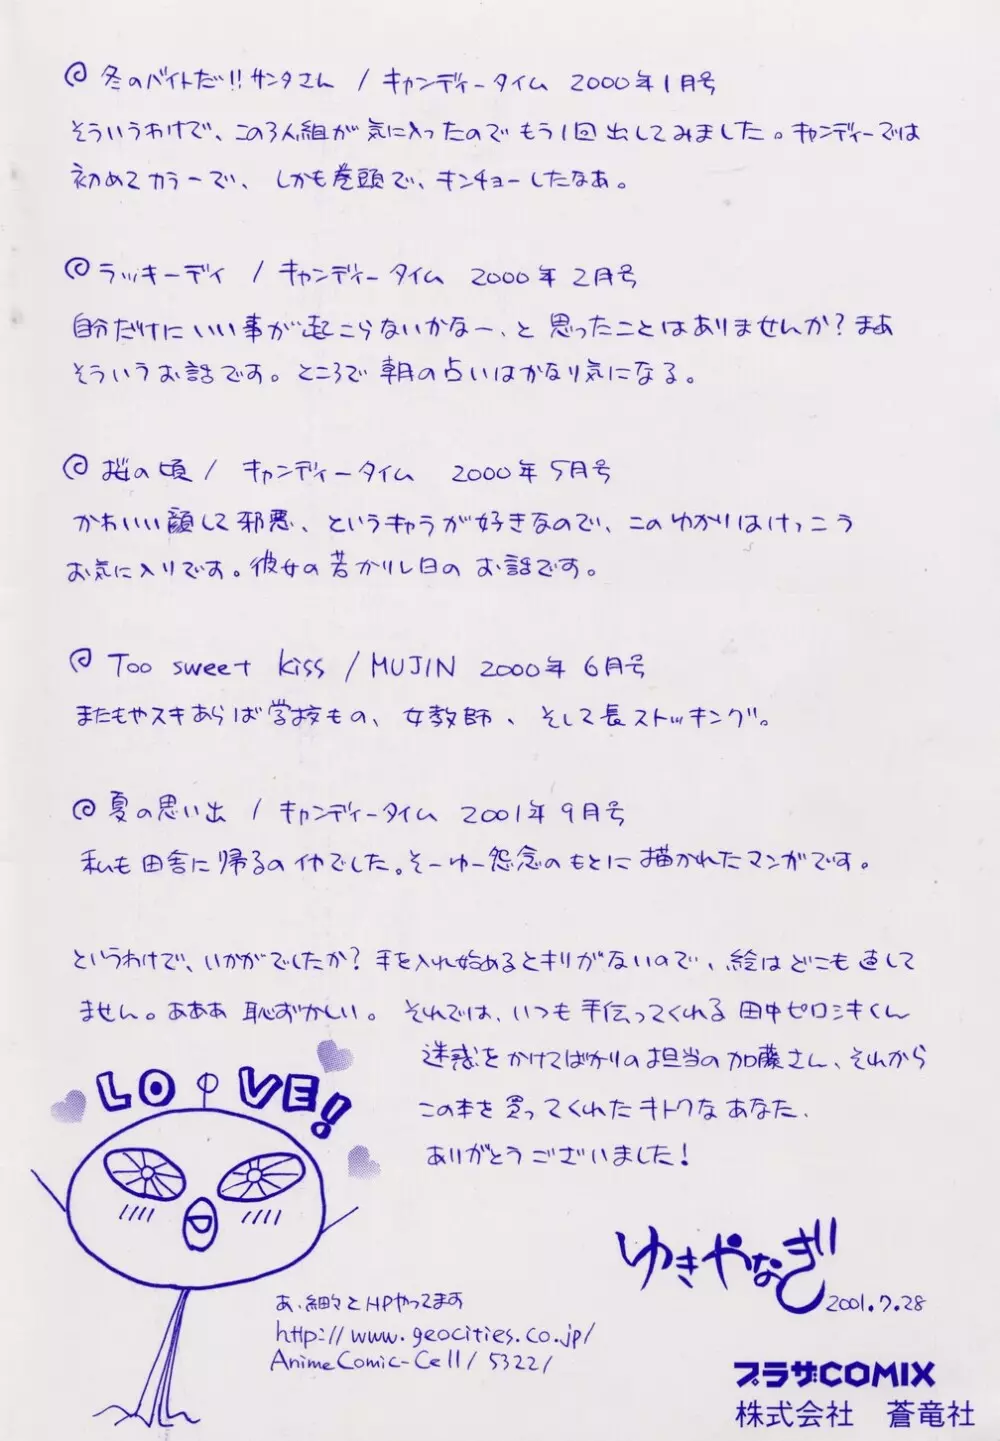 冬のバイトだ!!サンタさん / キャンディータイム 2000年1月号
そういうわけで、この3人組が気に入ったのでもう1回出してみました。キャンディーでは
初めてカラーで、しかも巻頭で、キンチョーしたなあ。
ラッキーデイ / キャンディータイム 2000年2月号
自分だけにいい事が起こらないかなー、と思ったことはありませんか?まあ
そういうお話です。ところで朝の占いはかなり気になる。
桜の頃 / キャンディータイム 2000年5月号
かわいい顔して邪悪、というキャラが好きなので、このゆかりはけっこう
お気に入りです。彼女の若かりし日のお話です。
Too sweet kiss / MUJIN 2000年6月号
またもやスキあらば学校もの、女教師、そして長ストッキング。
夏の思い出 / キャンディータイム 2001年9月号
私も田舎に帰るのイヤでした。そーゆー怨念のもとに描かれたマンガです。
というわけで、いかがでしたか?手を入れ始めるとキリがないので、絵はどこも直して
ません。あああ恥ずかしい。それでは、いつも手伝ってくれる田中ピロシキくん
迷惑をかけてばかりの担当の加藤さん、それから
この本を買ってくれたキトクなあなた、
ありがとうございました!
LOVE!
ゆきやなぎ
2001.7.28
あ、細々とHPやってます
http://www.geocities.co.jp/
AnimeComic-Cell/5322/
プラザCOMIX
株式会社 蒼竜社